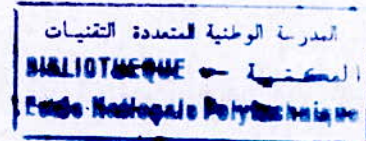 المدرسة الوطنية المتعددة التقنيات
BIBLIOTHEQUE — المكتبة
Ecole Nationale Polytechnique